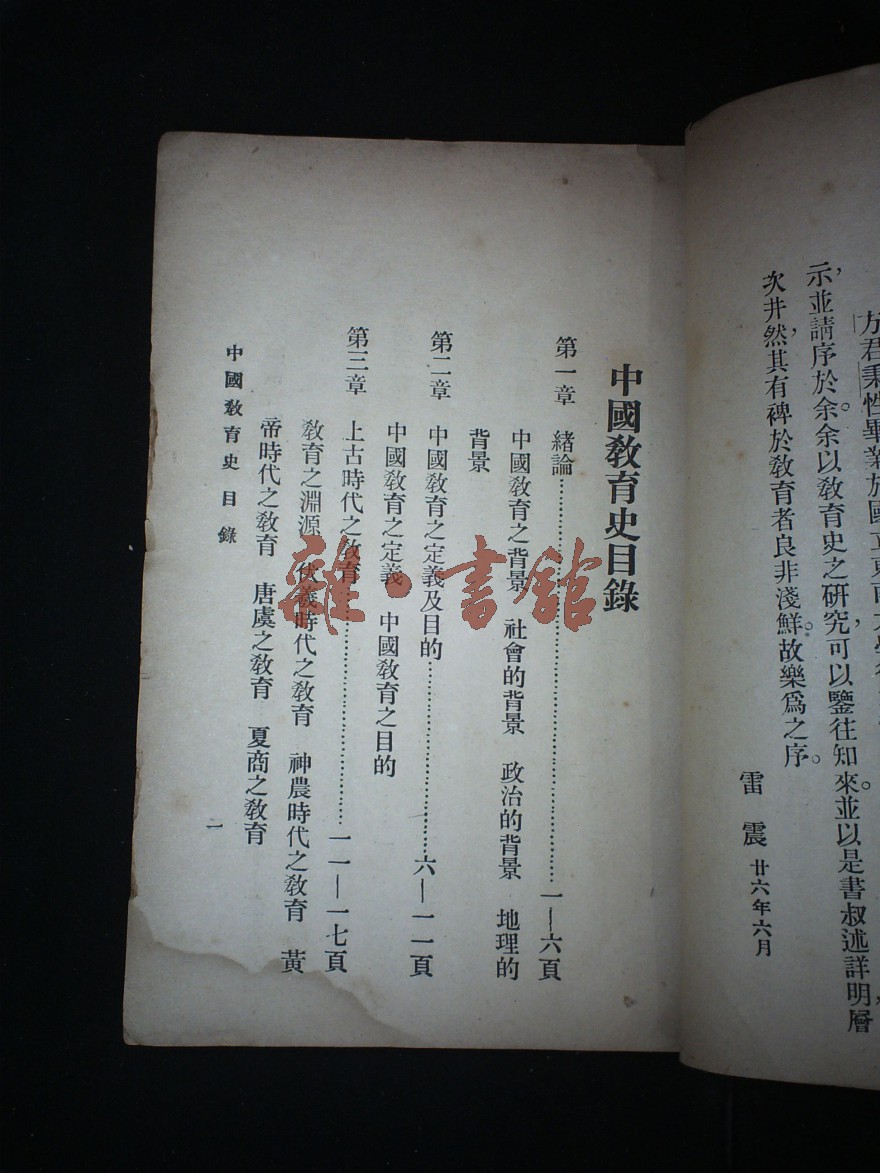 方君秉性畢業於國立東南大學
示，並請序於余。余以教育史之研究，可以鑒往知來。並以是書叙述詳明，層
次井然，其有裨於教育者良非淺鮮。故樂爲之序。
雷震 廿六年六月
中國教育史目錄
第一章 緒論……一—六頁
中國教育之背景 社會的背景 政治的背景 地理的
背景
第二章 中國教育之定義及目的……六—一一頁
中國教育之定義 中國教育之目的
第三章 上古時代之教育……一一—一七頁
教育之淵源 伏羲時代之教育 神農時代之教育 黃
帝時代之教育 唐虞之教育 夏商之教育
中國教育史 目錄
一
雜·書館